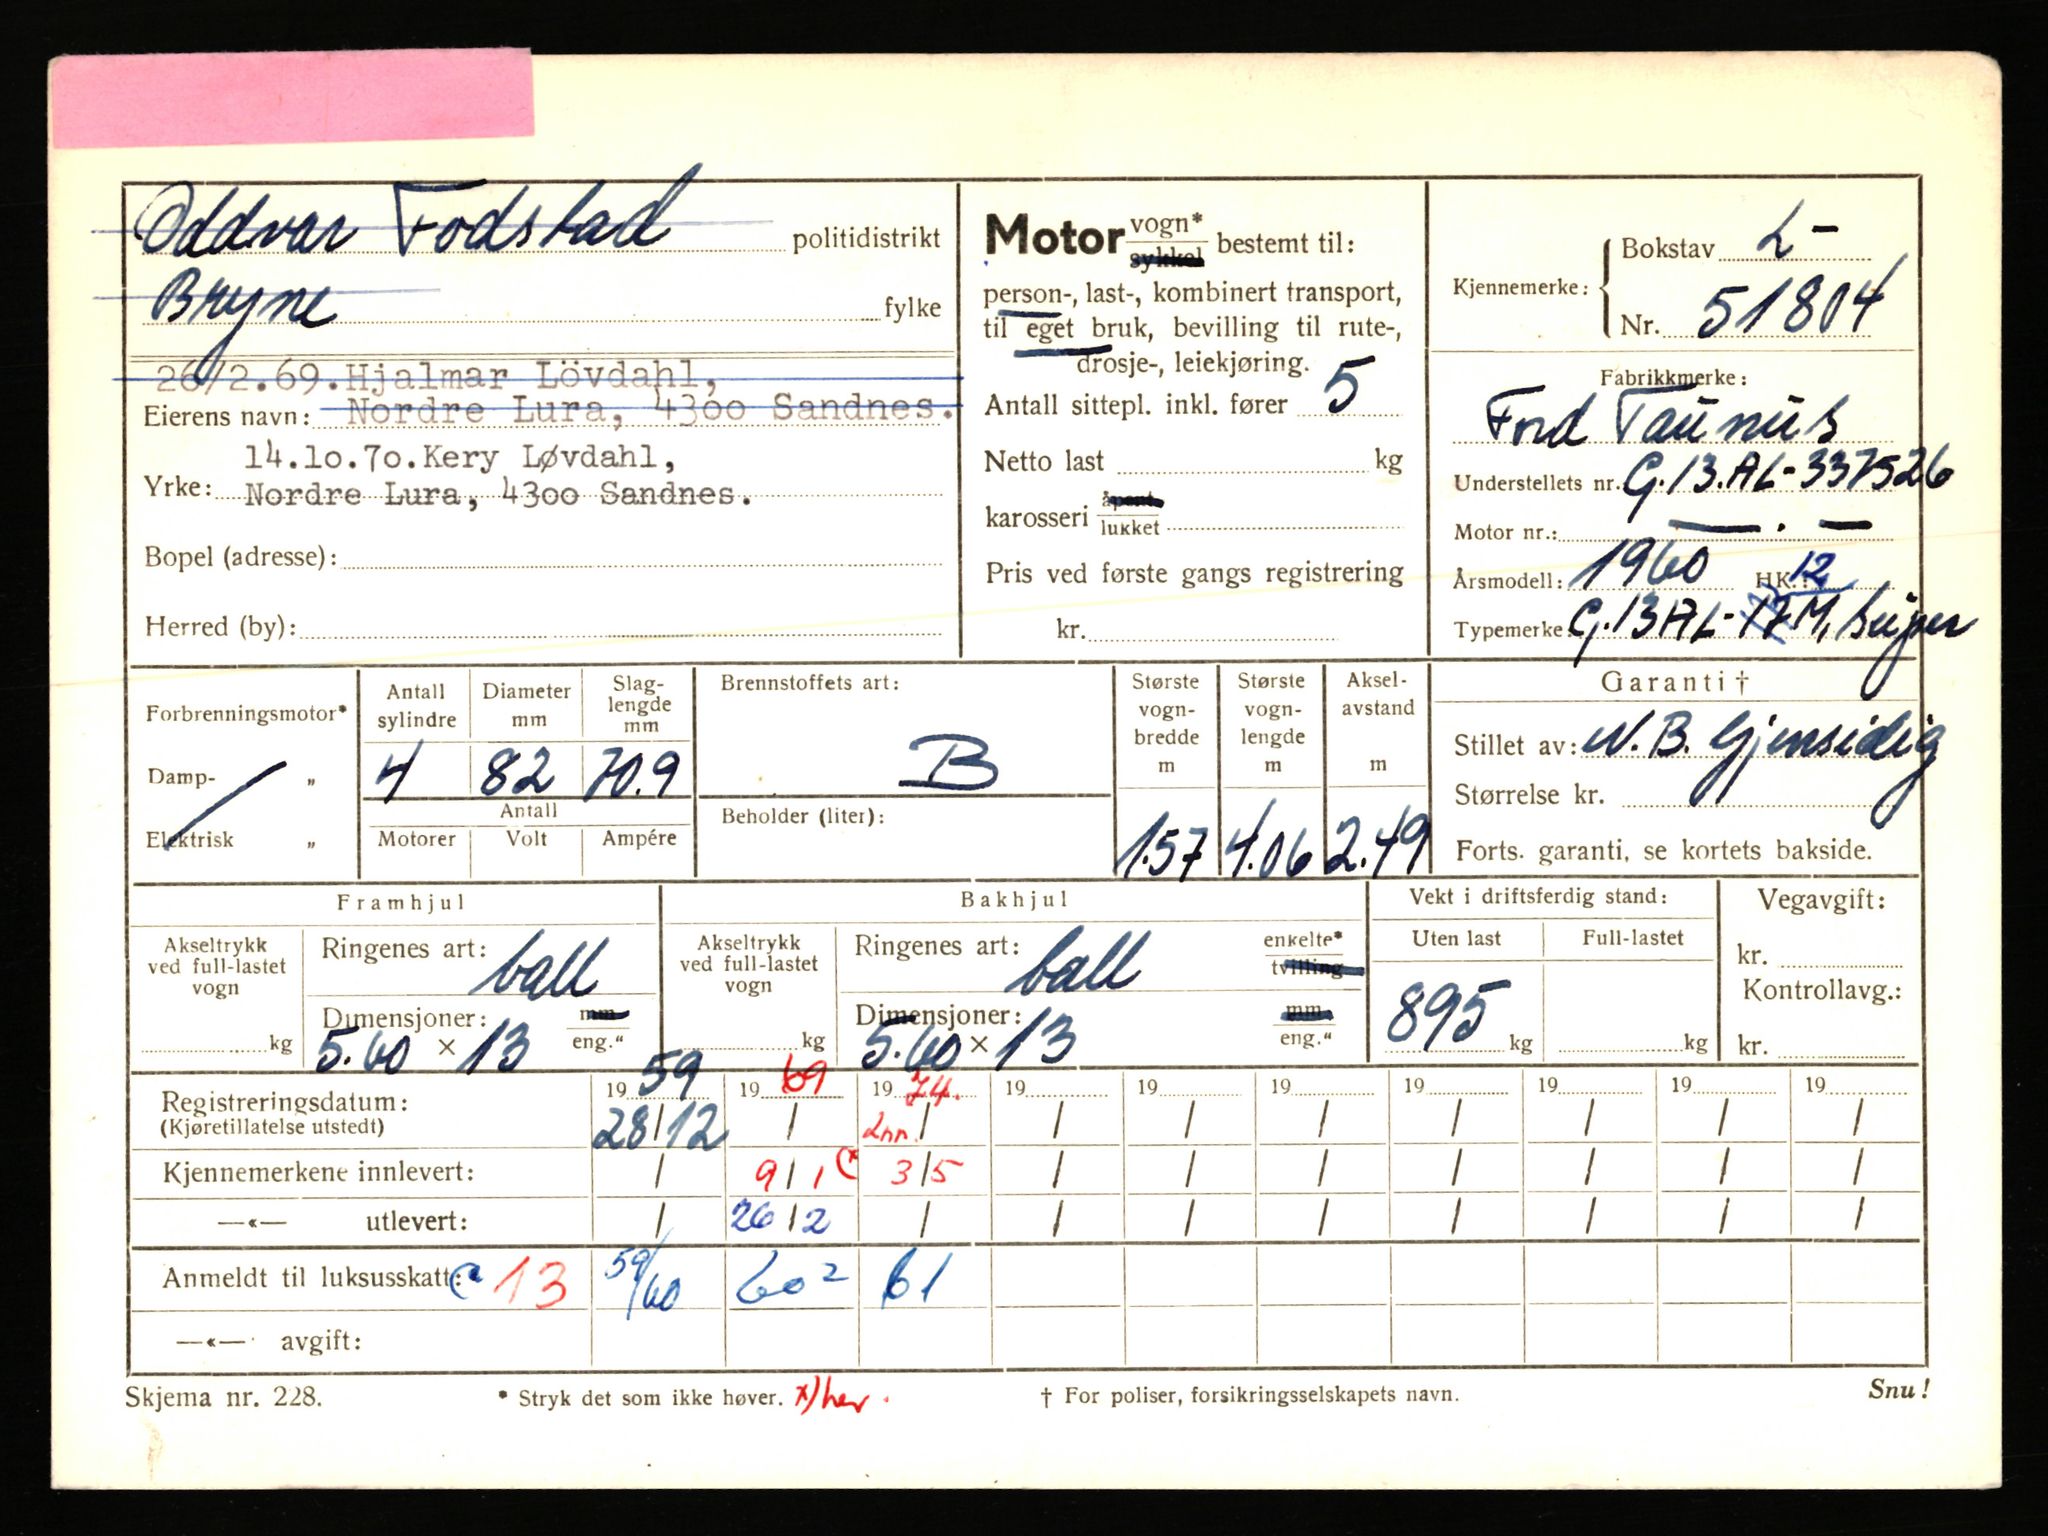 Oddvar Fodstad politidistrikt
Bryne fylke
26/2.69.Hjalmar Lövdahl,
Eierens navn: Nordre Lura, 43oo Sandnes.
14.1o.7o.Kery Løvdahl,
Yrke: Nordre Lura, 43oo Sandnes.
Bopel (adresse):
Herred (by):
Motor vogn* sykkel bestemt til:
person-, last-, kombinert transport,
til eget bruk, bevilling til rute-,
drosje-, leiekjøring.
Antall sittepl. inkl. fører 5
Netto last kg
karosseri åpent lukket
Pris ved første gangs registrering
kr.
Kjennemerke: Bokstav L-
Nr. 51804
Fabrikkmerke:
Ford Taunus
Understellets nr. G.13.AL-337526
Motor nr.: — . —
Årsmodell: 1960 HK.: 12
Typemerke G.13AL-17M, super
Forbrenningsmotor*
Damp- „
Elektrisk „
Antall sylindre 4
Diameter mm 82
Slag-lengde mm 70.9
Antall
Motorer Volt Ampére
Brennstoffets art:
B
Beholder (liter):
Største vogn-bredde m 1.57
Største vogn-lengde m 4.06
Aksel-avstand m 2.49
Garanti †
Stillet av: N.B. Gjensidig
Størrelse kr.
Forts. garanti, se kortets bakside.
Framhjul
Akseltrykk ved full-lastet vogn
kg
Ringenes art: ball
Dimensjoner: mm eng."
5.60 × 13
Bakhjul
Akseltrykk ved full-lastet vogn
kg
Ringenes art: ball enkelte* tvilling
Dimensjoner: mm eng."
5.60 × 13
Vekt i driftsferdig stand:
Uten last Full-lastet
895 kg kg
Vegavgift:
kr.
Kontrollavg.:
kr.
19 59 19 69 19 74. 19 19 19 19 19 19 19
Registreringsdatum: 28/12 / Inn. / / / / / / / /
(Kjøretillatelse utstedt)
Kjennemerkene innlevert: / 9/1 (* 3/5 / / / / / / /
—«— utlevert: / 26/2 / / / / / / / /
Anmeldt til luksusskatt: 13 59/60 60² 61
—«— avgift:
Skjema nr. 228.
* Stryk det som ikke høver. x) her.
† For poliser, forsikringsselskapets navn.
Snu!